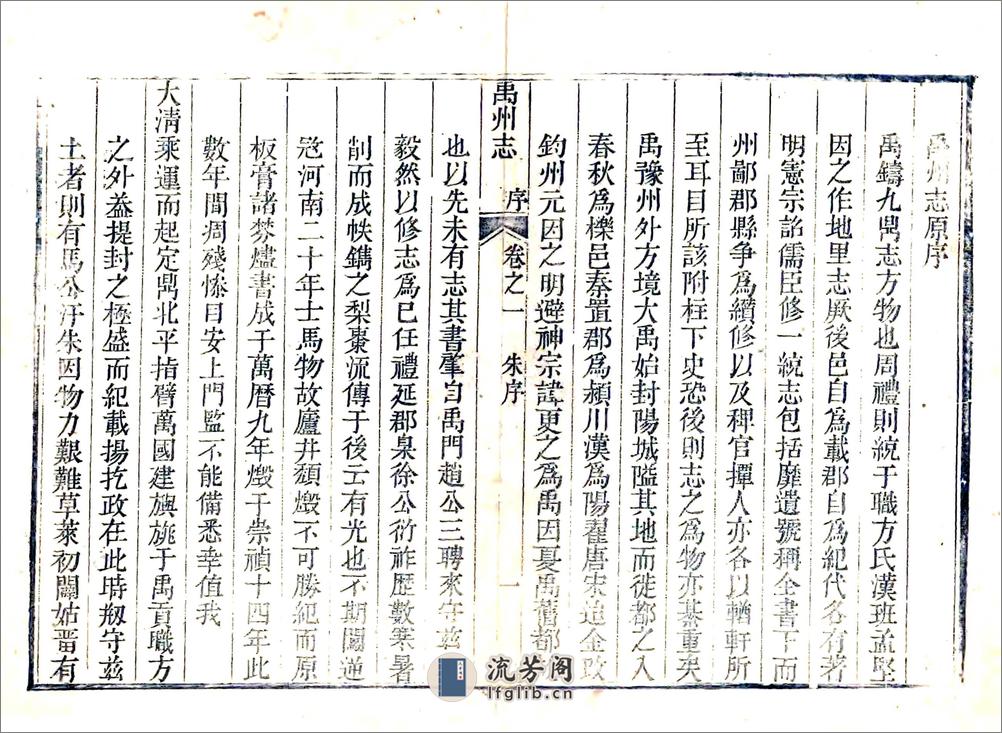 禹州志原序
禹鑄九鼎志方物也周禮則統于職方氏漢班孟堅
因之作地里志厥後邑自為載郡自為紀代各有著
明憲宗詔儒臣修一統志包括靡遺號稱全書下而
州鄙郡縣爭為纘修以及稗官撢人亦各以輶軒所
至耳目所該附柱下史恐後則志之為物亦綦重矣
禹豫州外方境大禹始封陽城隘其地而徙都之入
春秋為櫟邑秦置郡為頴川漢為陽翟唐宋迨金改
鈞州元因之明避神宗諱更之為禹因夏禹舊都
禹州志 序 卷之一 朱序 一
也以先未有志其書肇自禹門趙公三聘來守茲
毅然以修志為己任禮延郡臬徐公衍祚歷數寒暑
削而成帙鐫之梨棗流傳于後云有光也不期闖逆
冦河南二十年士馬物故廬井頹燬不可勝紀而原
板膏諸焚燼書成于萬曆九年燬于崇禎十四年此
數年間凋殘慘目安上門監不能備悉幸值我
大清乘運而起定鼎北平指臂萬國建旟旐于禹貢職方
之外益提封之極盛而紀載揚扢政在此時刱守茲
土者則有馬公汙朱因物力艱難草萊初闢姑晋有
流芳阁
lfglib.cn